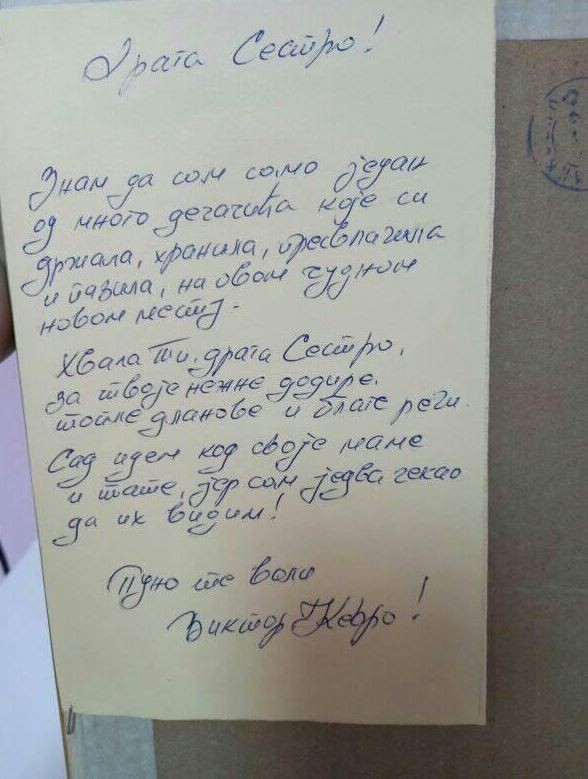 Драга Сестро!
Знам да сам само један
од много дечачића које си
држала, хранила, пресвлачила
и пазила, на овом чудном
новом месту.
Хвала Ти, драга Сестро,
за твоје нежне додире,
топле дланове и благе речи.
Сад идем код своје маме
и тате, јер сам једва чекао
да их видим!
Пуно те воли
Виктор